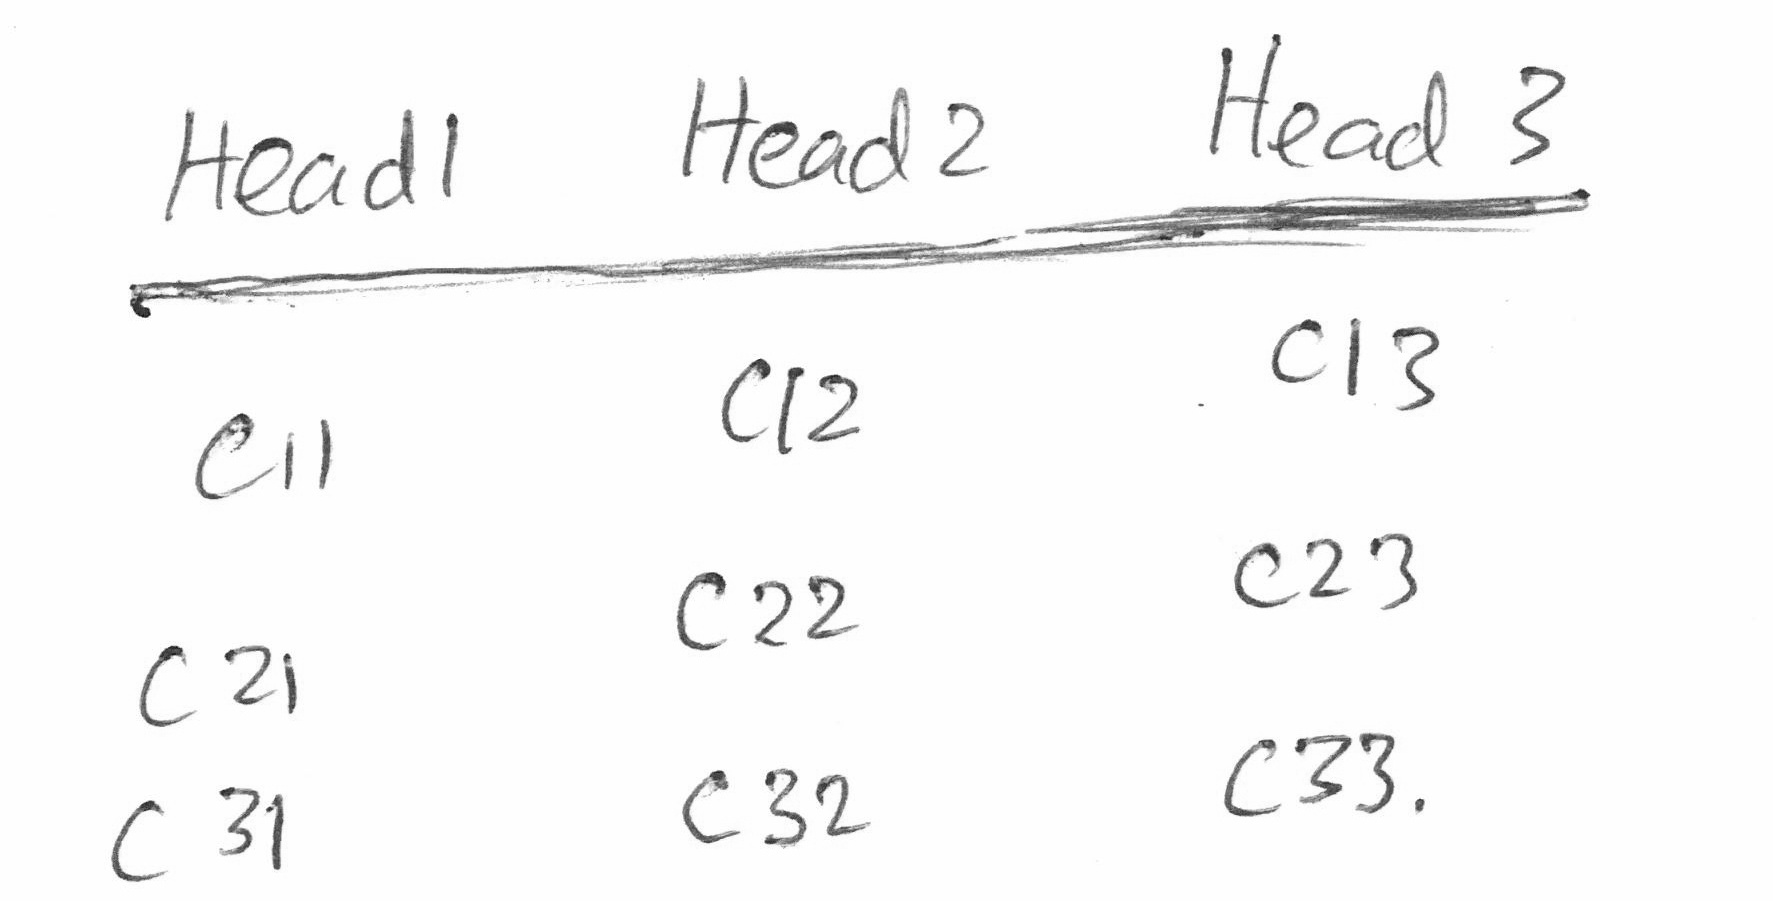 Head1 Head 2 Head 3
C11 C12 C13
C21 C22 C23
C31 C32 C33.